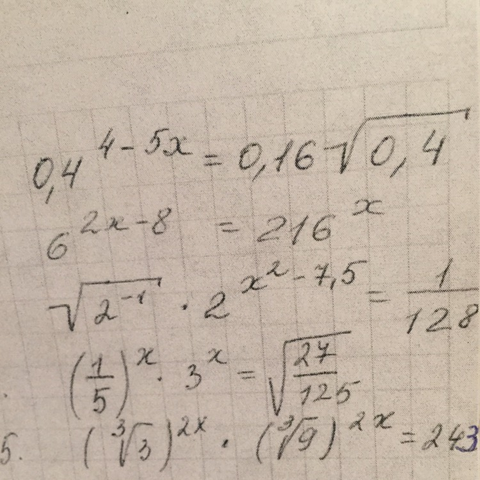 0,4^{4-5x} = 0,16√(0,4)
6^{2x-8} = 216^x
√(2^{-1}) · 2^{x^2-7,5} = 1/128
(1/5)^x · 3^x = √(27/125)
5. (∛3)^{2x} · (∛9)^{2x} = 243